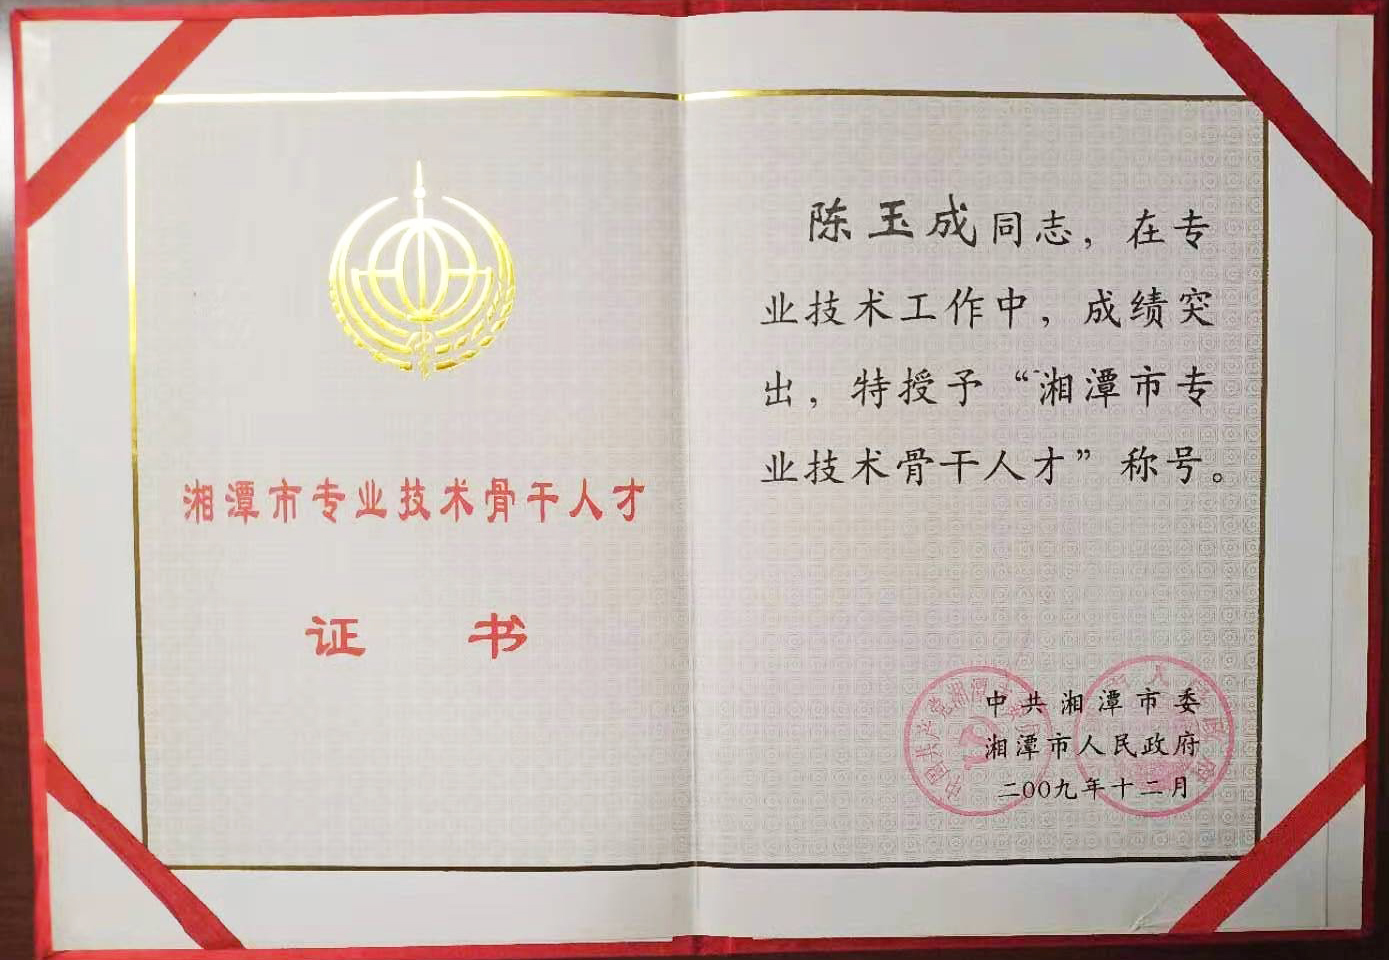 湘潭市专业技术骨干人才
证 书
陈玉成同志，在专
业技术工作中，成绩突
出，特授予“湘潭市专
业技术骨干人才”称号。
中共湘潭市委
湘潭市人民政府
二〇〇九年十二月